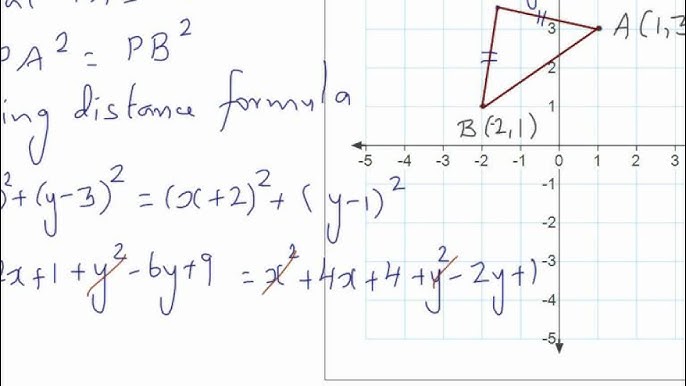 PA² = PB²
distance formula
² + (y-3)² = (x+2)² + (y-1)²
2x + 1 + y² - 6y + 9 = x² + 4x + 4 + y² - 2y + 1
A (1, 3
B (-2, 1)
3
1
-5 -4 -3 -2 -1 0 1 2 3
-1
-2
-3
-4
-5